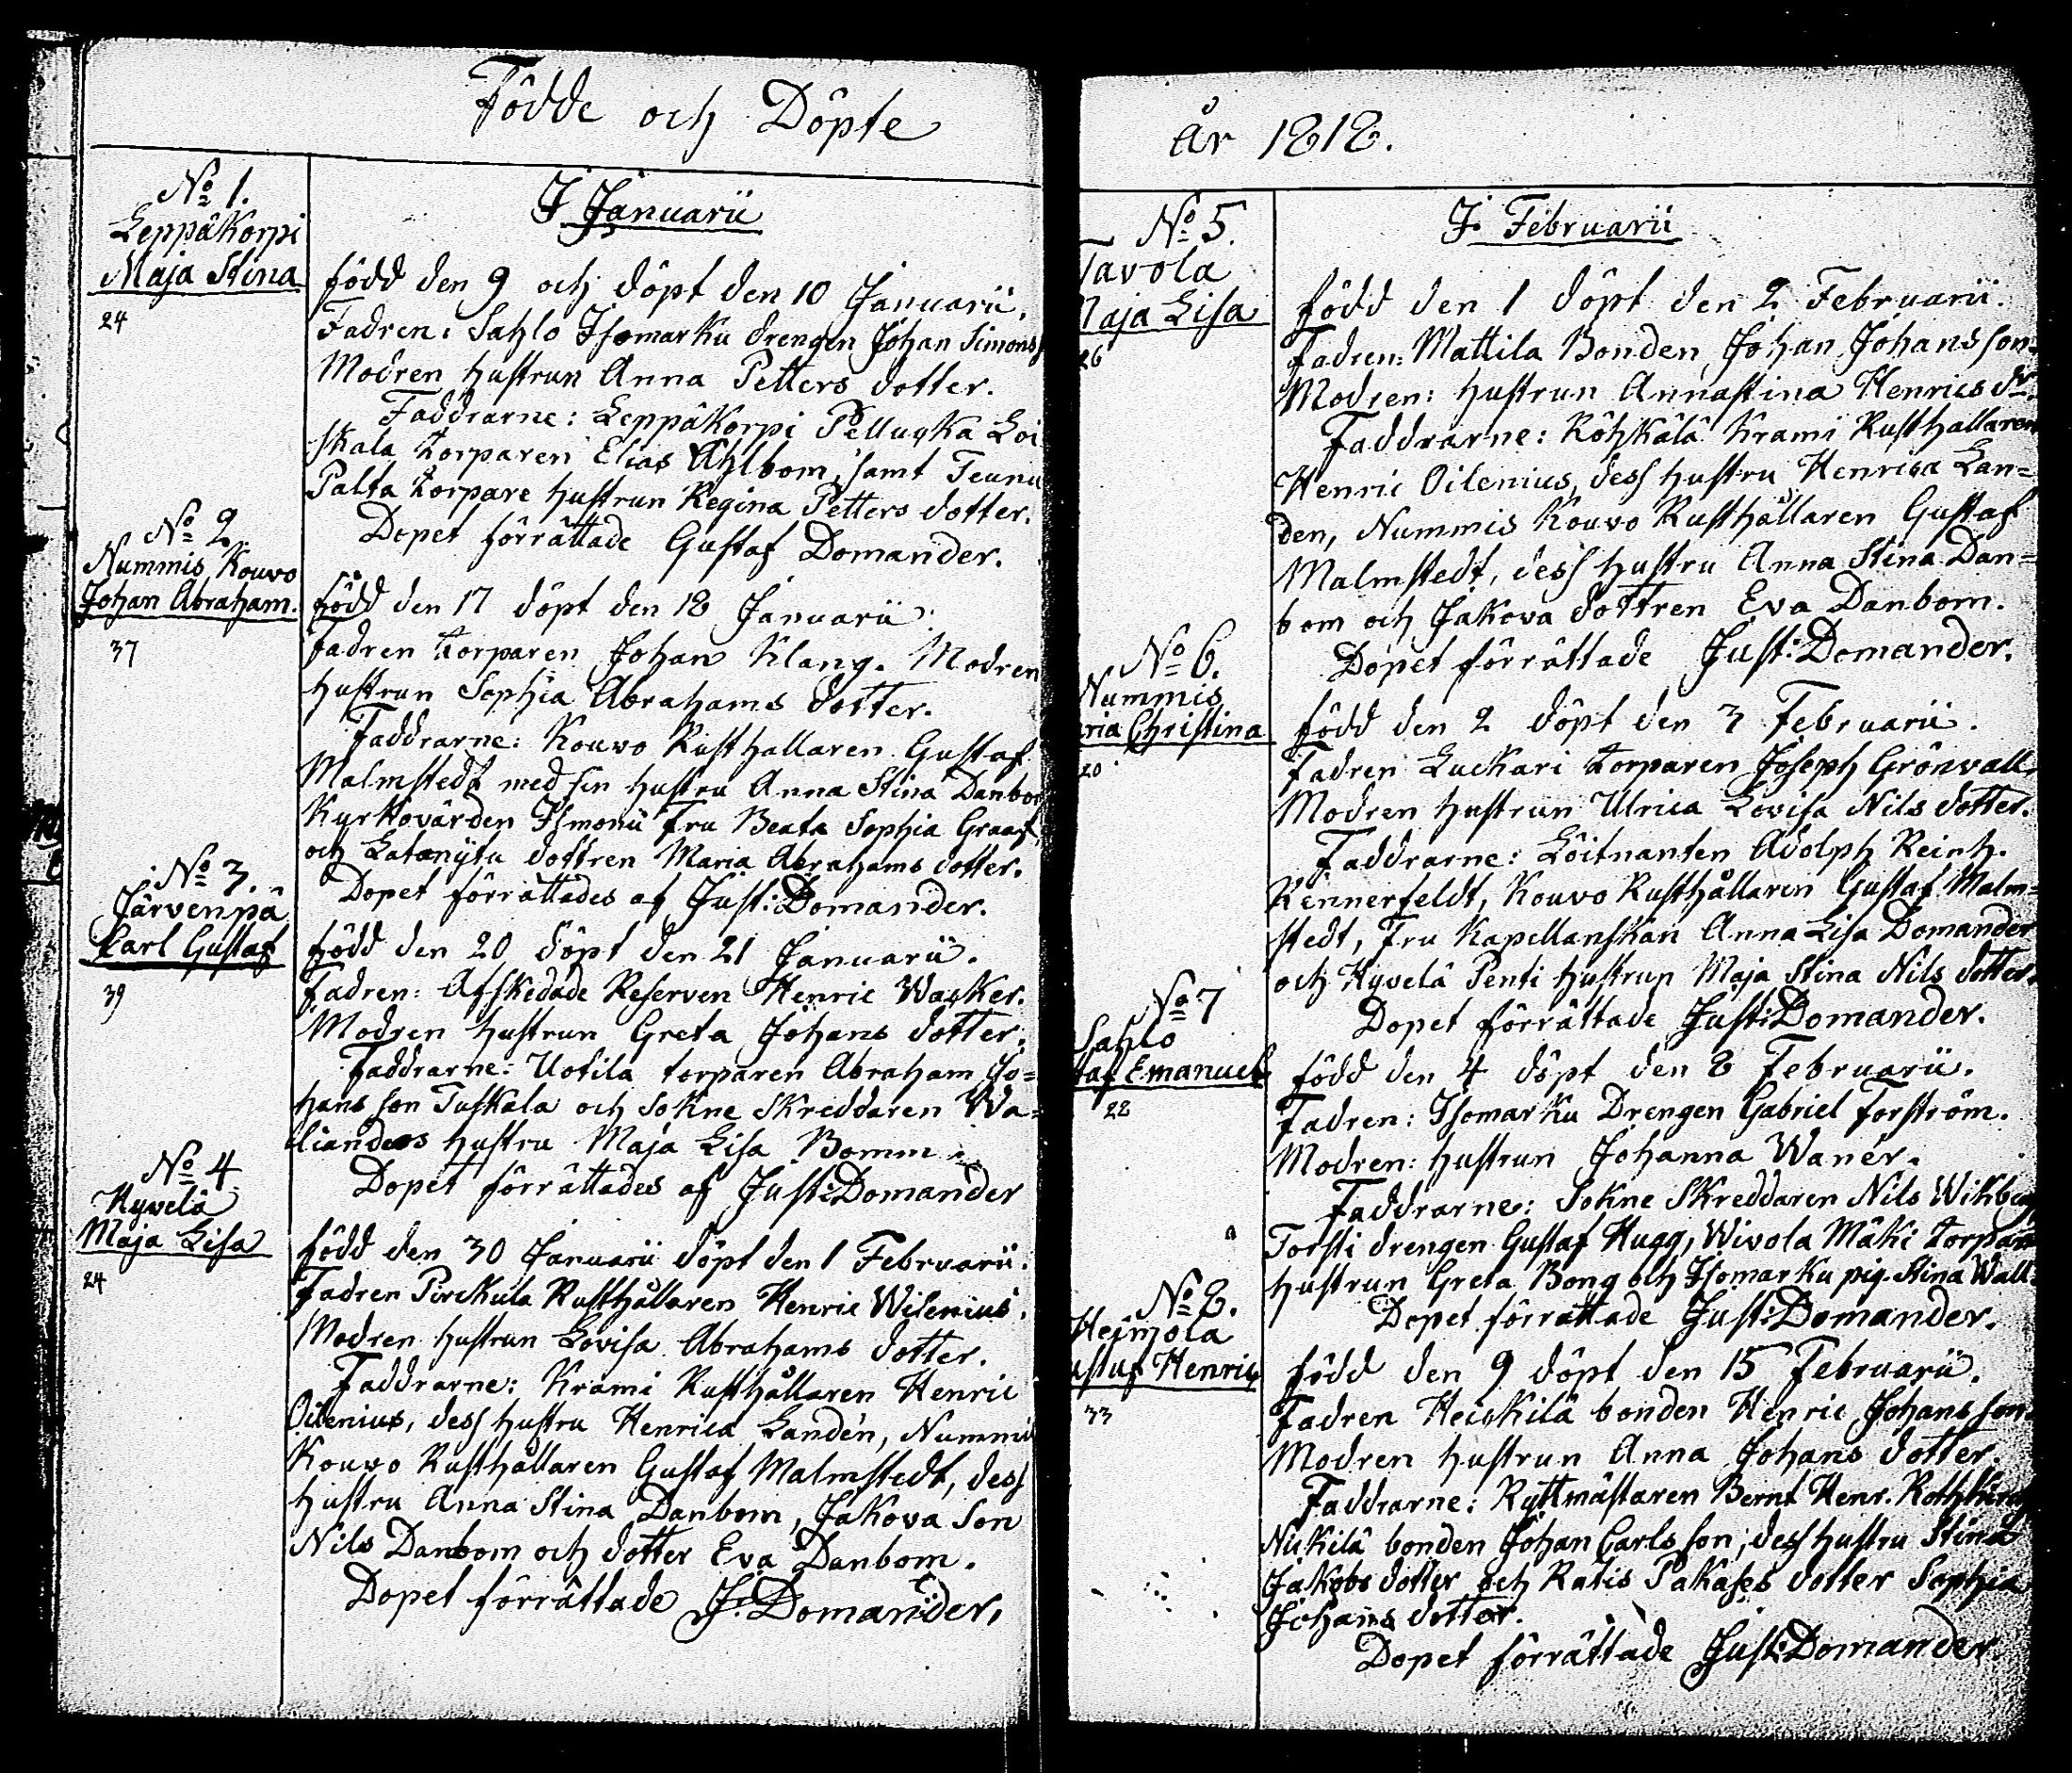 Födde och Döpte
N:o 1.
Leppäkorpi
Maja Stina
24
I Januarii
född den 9 och döpt den 10 Januarii.
Fadren: Sahlo Isomarku drengen Johan Simons
Modren hustrun Anna Petters dotter.
Faddrarne: Leppäkorpi Pelluska Loi
skala torparen Elias Ahlbom, samt Teunu
Palta torpare hustrun Regina Petters dotter.
Dopet förrättade Gustaf Domander.
N:o 2.
Nummis Kouvo
Johan Abraham.
37
född den 17 döpt den 18 Januarii.
fadren torparen Johan Klang. Modren
hustrun Sophia Abrahams dotter.
Faddrarne: Kouvo Rusthållaren Gustaf
Malmstedt med sin hustru Anna Stina Danbom
Kyrkovärden Fru Beata Sophia Graaf,
och dottren Maria Abrahams dotter.
Dopet förrättades af Just: Domander.
N:o 3.
Järvenpä
Carl Gustaf
39
född den 20 döpt den 21 Januarii.
fadren: Afskedade Reserven Henric Wacker.
Modren hustrun Greta Johans dotter.
Faddrarne: Uotila torparen Abraham Jo=
hans son Tuskala och Sokne Skreddaren Wa=
lianders hustru Maja Lisa Bomm.
Dopet förrättades af Just: Domander
N:o 4.
Hyvelä
Maja Lisa
24
född den 30 Januarii döpt den 1 Februarii.
Fadren Pirckula Rusthållaren Henric Wilenius.
Modren hustrun Lovisa Abrahams dotter.
Faddrarne: Krami Rusthållaren Henric
Oilenius, dess hustru Henrica Landén, Nummis
Kouvo Rusthållaren Gustaf Malmstedt, dess
hustru Anna Stina Danbom, Jakova Son
Nils Danbom och dotter Eva Danbom.
Dopet förrättade J: Domander.
år 1818.
N:o 5.
Tavola
Maja Lisa
26
I. Februarii
född den 1 döpt den 2 Februarii.
Fadren: Mattila Bonden Johan Johansson.
Modren: hustrun Annastina Henrics dr.
Faddrarne: Röhkälä Krami Rusthållaren
Henric Oilenius, dess hustru Henrica Lan=
den, Nummis Kouvo Rusthållaren Gustaf
Malmstedt, dess hustru Anna Stina Dan=
bom och Jakova dottren Eva Danbom.
Dopet förrättade Just: Domander.
N:o 6.
Nummis
ria Christina
20
född den 2 döpt den 3 Februarii.
Fadren Luckari torparen Joseph Grönvall.
Modren hustrun Ulrica Lovisa Nils dotter.
Faddrarne: Löitnanten Adolph Reinh.
Rennerfeldt, Kouvo Rusthållaren Gustaf Malm=
stedt, Fru Kapellanskan Anna Lisa Domander
och Hyvelä Penti hustrun Maja Stina Nils dotter.
Dopet förrättade Just: Domander.
N:o 7
Sahlo
taf Emanuel
28
född den 4 döpt den 8 Februarii.
Fadren: Isomarku Drengen Gabriel Forström.
Modren: hustrun Johanna Wanér.
Faddrarne: Sokne Skreddaren Nils Wikberg
Torsti drengen Gustaf Hugg, Wivola Mäki torpare
hustrun Greta Bong och Isomarku pig. Stina Wall.
Dopet förrättade Just: Domander.
N:o 8.
Heinjola
ustaf Henric
33
född den 9 döpt den 15 Februarii.
Fadren Heickilä bonden Henric Johans son.
Modren hustrun Anna Johans dotter.
Faddrarne: Ryttmästaren Bernt Henr. Rothkirch
Nickilä bonden Johan Carls son, dess hustru Stina
Jakobs dotter och Ratis Pakases dotter Sophia
Johans dotter.
Dopet förrättade Just: Domander.